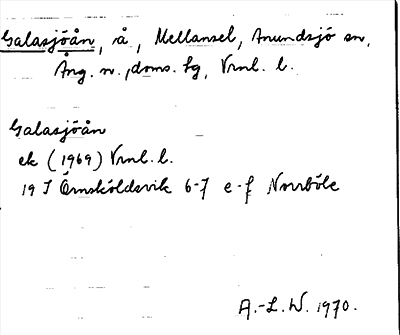 Galasjöån, å, Mellansel, Anundsjö sn,
Ång. n., doms. tg, Vrnl. l.
Galasjöån
ek (1969) Vrnl. l.
19 J Örnsköldsvik 6-7 e-f Norrböle
A.-L. W. 1970.